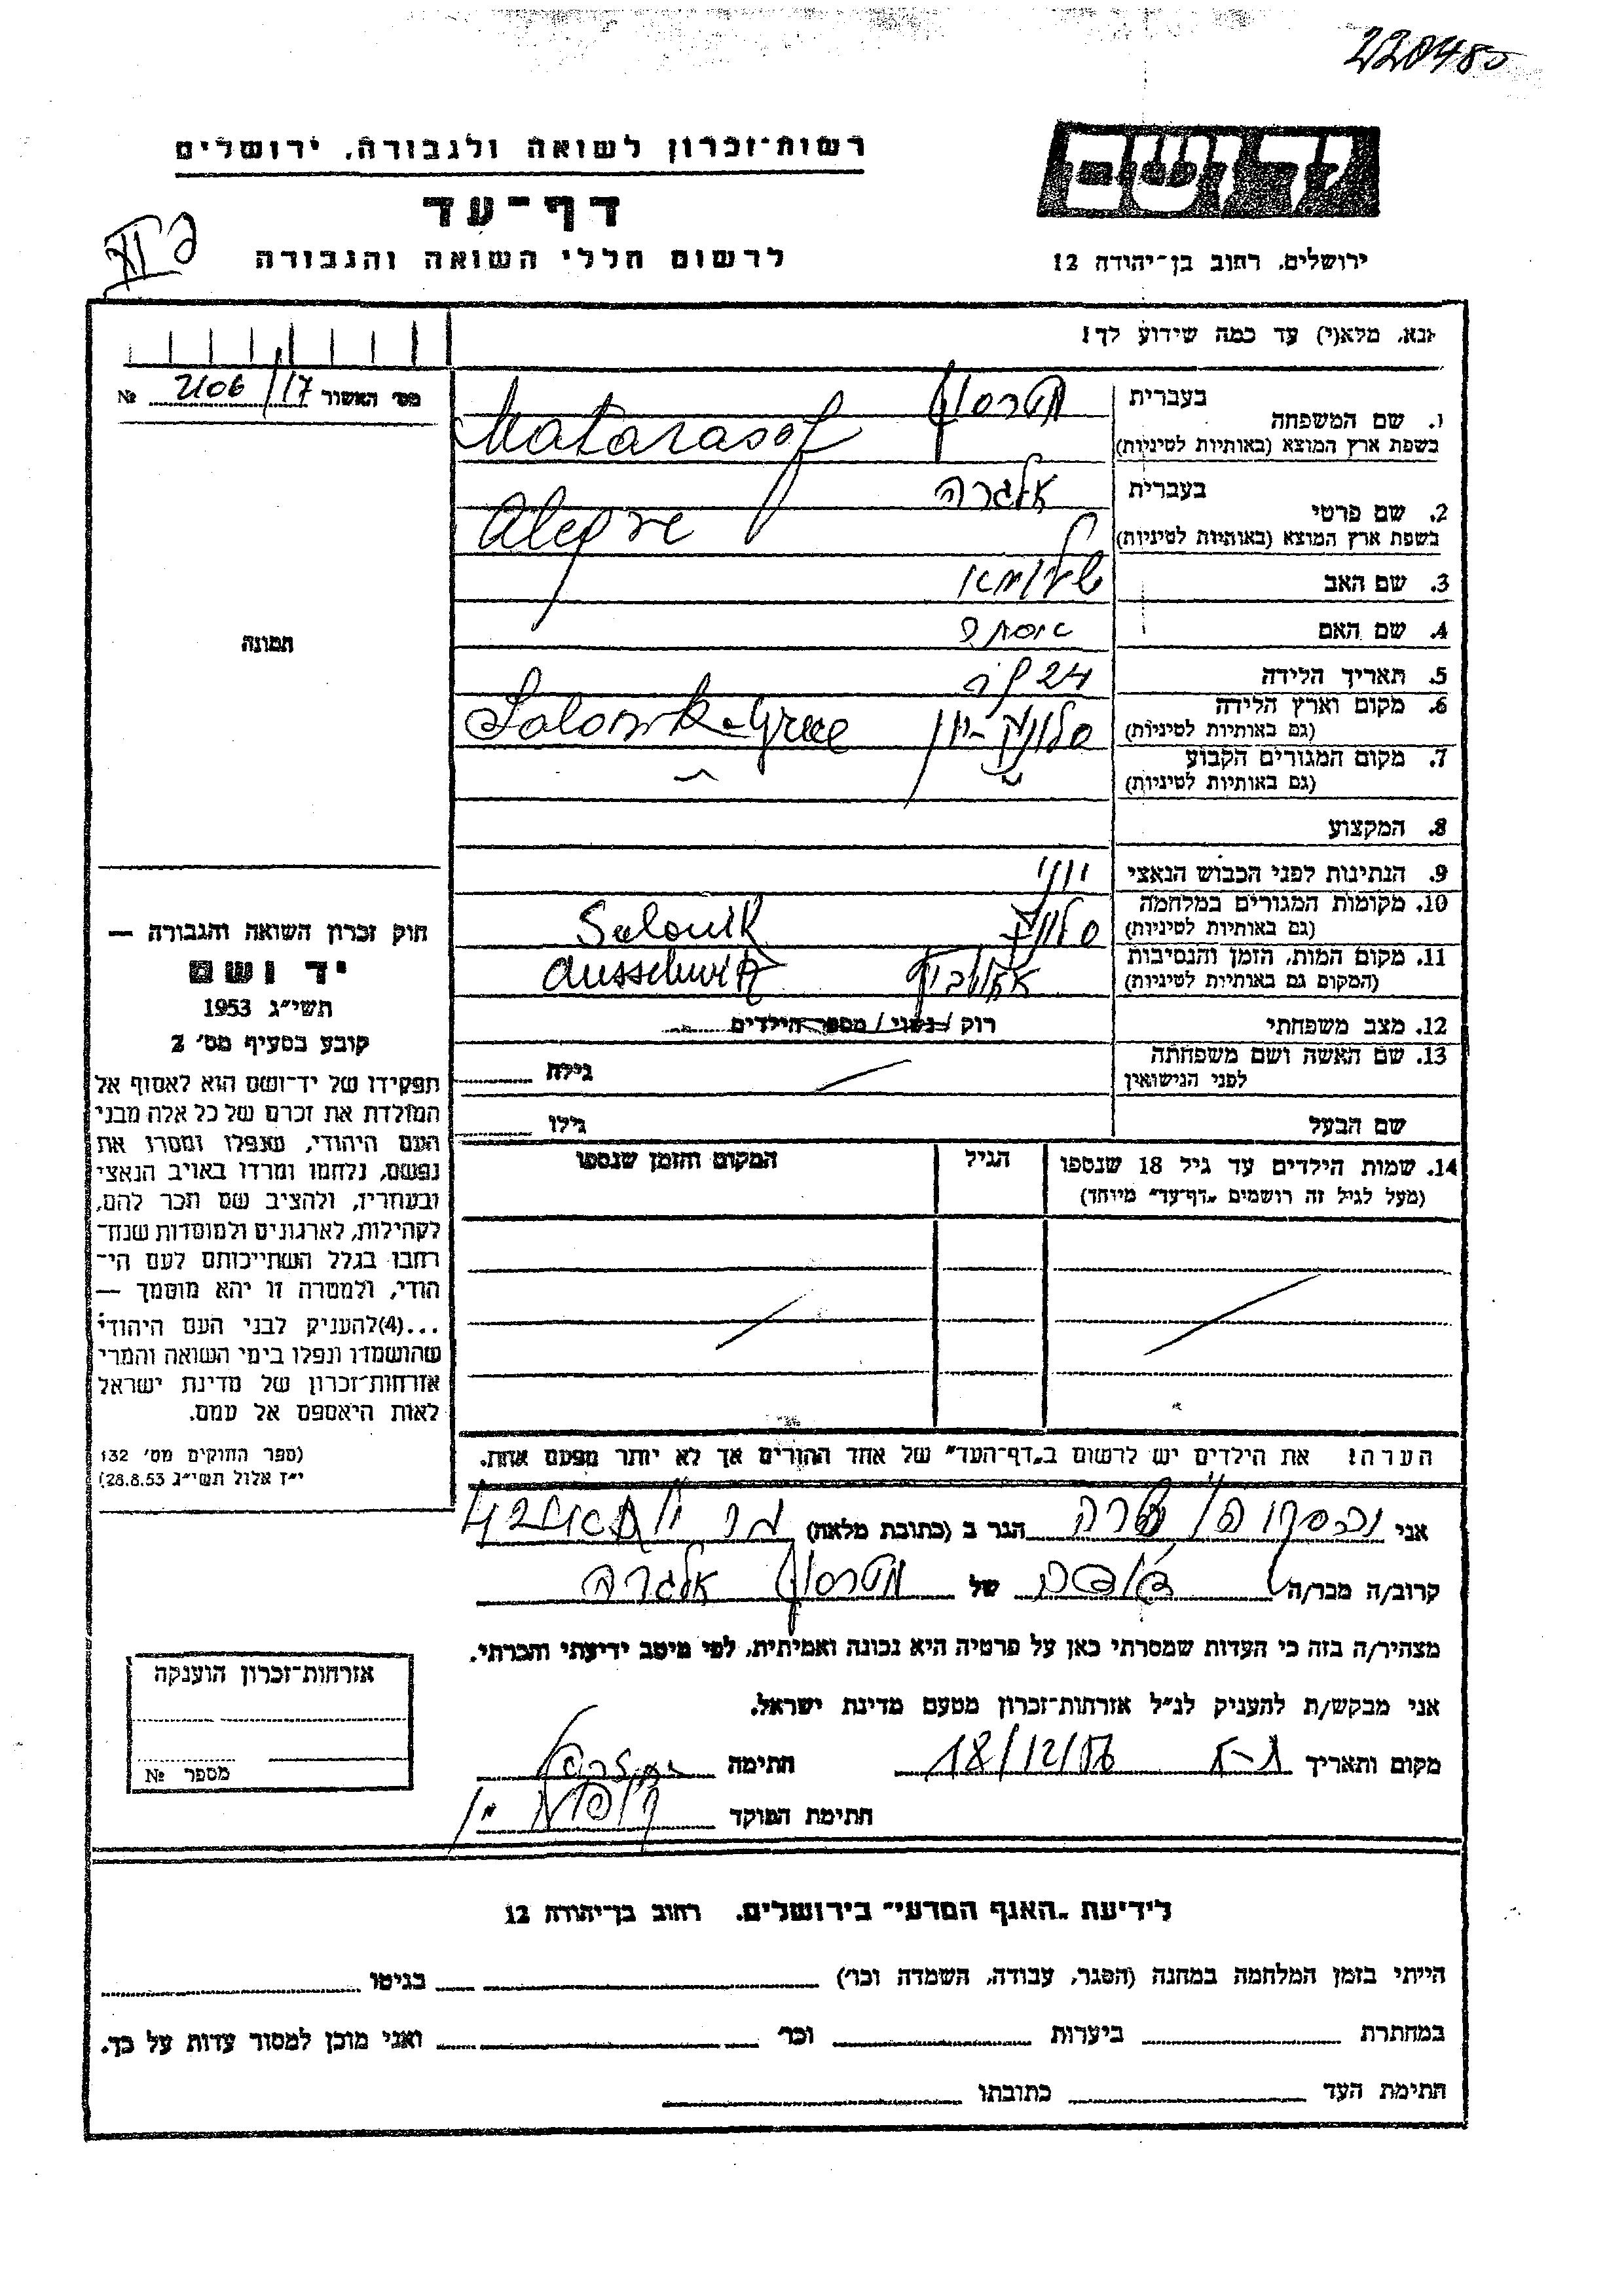 220485
רשות־זכרון לשואה ולגבורה, ירושלים
דף־עד
לרשום חללי השואה והגבורה
יד ושם
ירושלים, רחוב בן־יהודה 12
נא, מלא(י) עד כמה שידוע לך!
מס׳ האשור 2106/17 №
1. שם המשפחה
בעברית מטרסוף
בשפת ארץ המוצא (באותיות לטיניות) Matarasof
2. שם פרטי
בעברית אלגרה
בשפת ארץ המוצא (באותיות לטיניות) Alegre
3. שם האב
4. שם האם
5. תאריך הלידה 24
6. מקום וארץ הלידה סלוניקי-יון Salonik-Grece
(גם באותיות לטיניות)
7. מקום המגורים הקבוע
(גם באותיות לטיניות)
8. המקצוע
9. הנתינות לפני הכבוש הנאצי יוני
10. מקומות המגורים במלחמה סלוניקי Salonik
(גם באותיות לטיניות)
11. מקום המות, הזמן והנסיבות אושוביץ Ausschwitz
(המקום גם באותיות לטיניות)
12. מצב משפחתי רוק / נשוי / מספר הילדים
13. שם האשה ושם משפחתה
לפני הנישואין
גילה
שם הבעל גילו
14. שמות הילדים עד גיל 18 שנספו הגיל המקום והזמן שנספו
(מעל לגיל זה רושמים „דף־עד״ מיוחד)
הערה! את הילדים יש לרשום ב„דף־העד״ של אחד ההורים אך לא יותר מפעם אחת.
תמונה
חוק זכרון השואה והגבורה —
יד ושם
תשי״ג 1953
קובע בסעיף מס׳ 2
תפקידו של יד־ושם הוא לאסוף אל
המולדת את זכרם של כל אלה מבני
העם היהודי, שנפלו ומסרו את
נפשם, נלחמו ומרדו באויב הנאצי
ובעוזריו, ולהציב שם וזכר להם,
לקהילות, לארגונים ולמוסדות שנח־
רבו בגלל השתייכותם לעם הי־
הודי, ולמטרה זו יהא מוסמך —
...(4) להעניק לבני העם היהודי
שהושמדו ונפלו בימי השואה והמרי
אזרחות־זכרון של מדינת ישראל
לאות היאספם אל עמם.
(ספר החוקים מס׳ 132
י״ז אלול תשי״ג 28.8.53)
אני שרה הגר ב (כתובת מלאה)
קרוב/ה מכר/ה של מטרסוף אלגרה
מצהיר/ה בזה כי העדות שמסרתי כאן על פרטיה היא נכונה ואמיתית, לפי מיטב ידיעתי והכרתי.
אני מבקש/ת להעניק לנ״ל אזרחות־זכרון מטעם מדינת ישראל.
מקום ותאריך 18/12/56 חתימה
חתימת הפוקד
אזרחות־זכרון הוענקה
מספר №
לידיעת „האגף המדעי״ בירושלים, רחוב בן־יהודה 12
הייתי בזמן המלחמה במחנה (הסגר, עבודה, השמדה וכו׳) בגיטו
במחתרת ביערות וכו׳ ואני מוכן למסור עדות על כך.
חתימת העד כתובתו